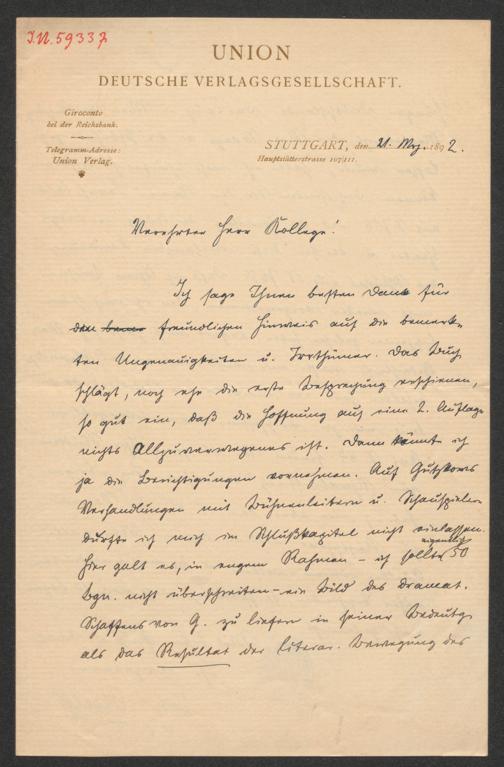 I.N. 59337
UNION
DEUTSCHE VERLAGSGESELLSCHAFT.
Giroconto
bei der Reichsbank.
Telegramm-Adresse:
Union Verlag.
STUTTGART, den 21. Mrz. 1892.
Hauptstätterstrasse 107/111.
Verehrter Herr Kollege!
Ich sage Ihnen besten Dank für
den freundlichen Hinweis auf die bemerk-
ten Ungenauigkeiten u. Irrthümer. Das Buch
schlägt, noch ehe die erste Besprechung erschienen,
so gut ein, daß die Hoffnung auf eine 2. Auflage
nichts Allzuverwegenes ist. Dann könnte ich
ja die Berichtigungen vornehmen. Auf Gutzkows
Verhandlungen mit Bühnenleitern u. Schauspielern
durfte ich mich im Schlußkapitel nicht einlassen.
Hier galt es, in engem Rahmen – ich sollte eigentlich 50
Bgn. nicht überschreiten – ein Bild des dramat.
Schaffens von G. zu liefern in seiner Bedeutg
als das Resultat der literar. Bewegung des